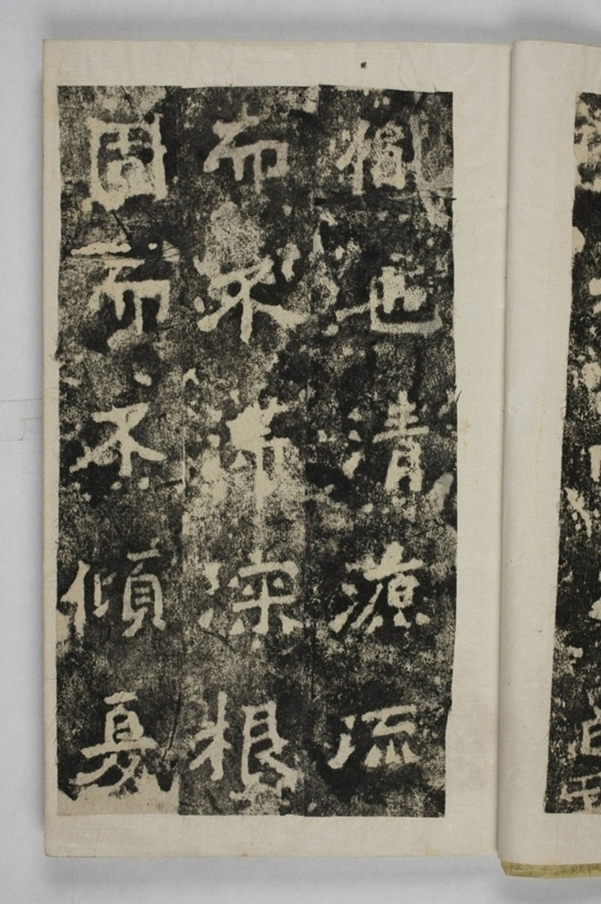 也清源流
而不滯深根
固而不傾